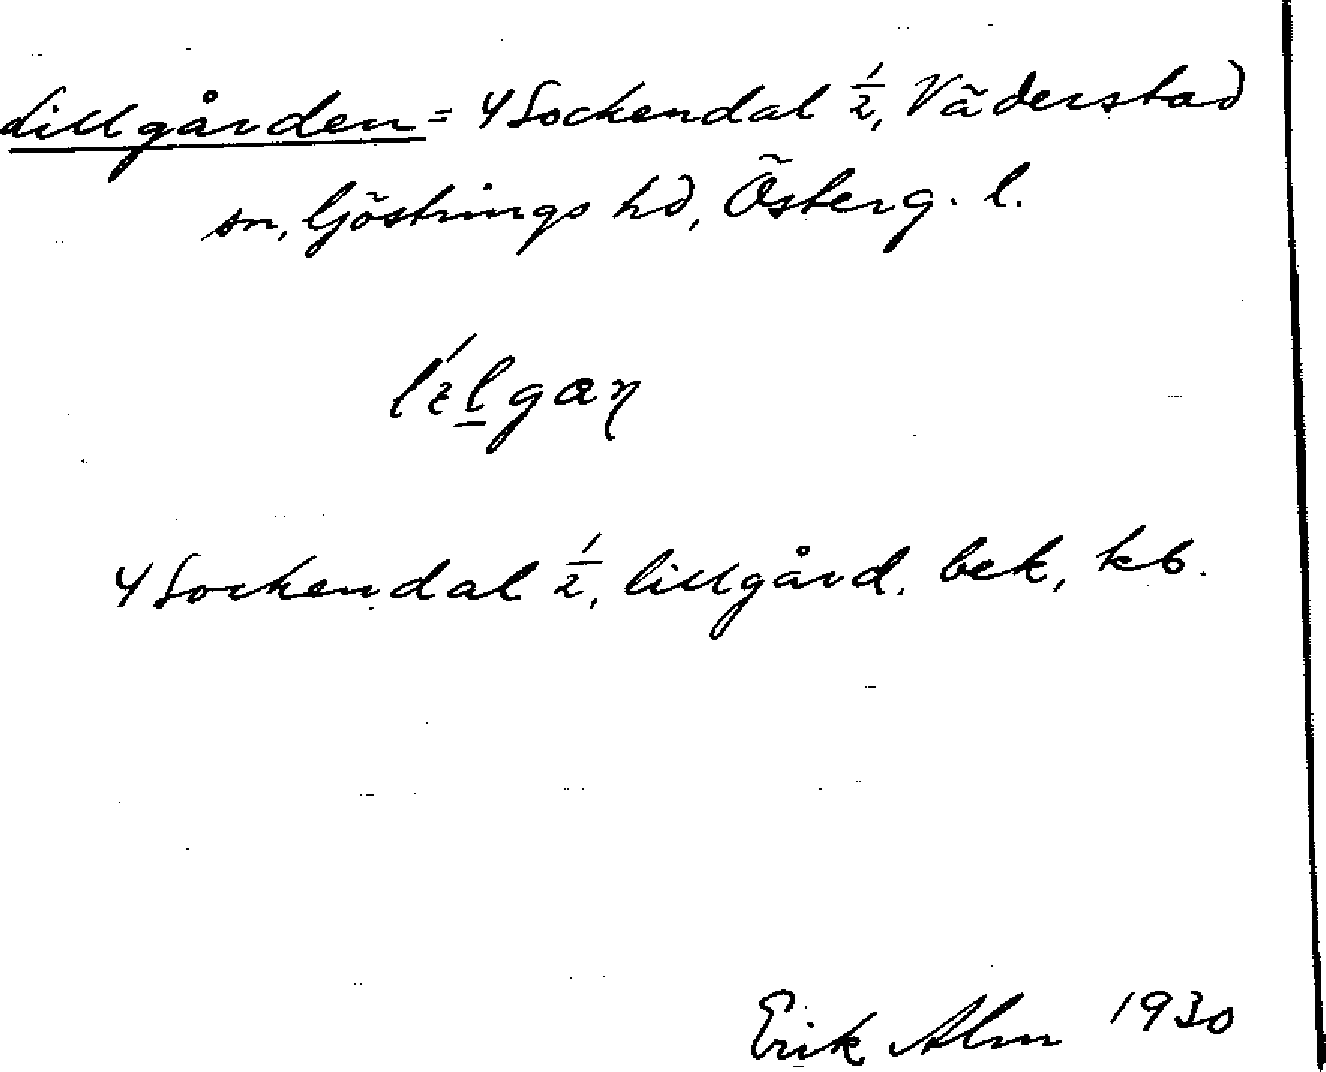 Lillgården = 4 Sockendal 1/2, Väderstad
sn, Göstrings hd, Österg. l.
4 Sockendal 1/2, lillgård. bek, kb.
Erik Alm 1930